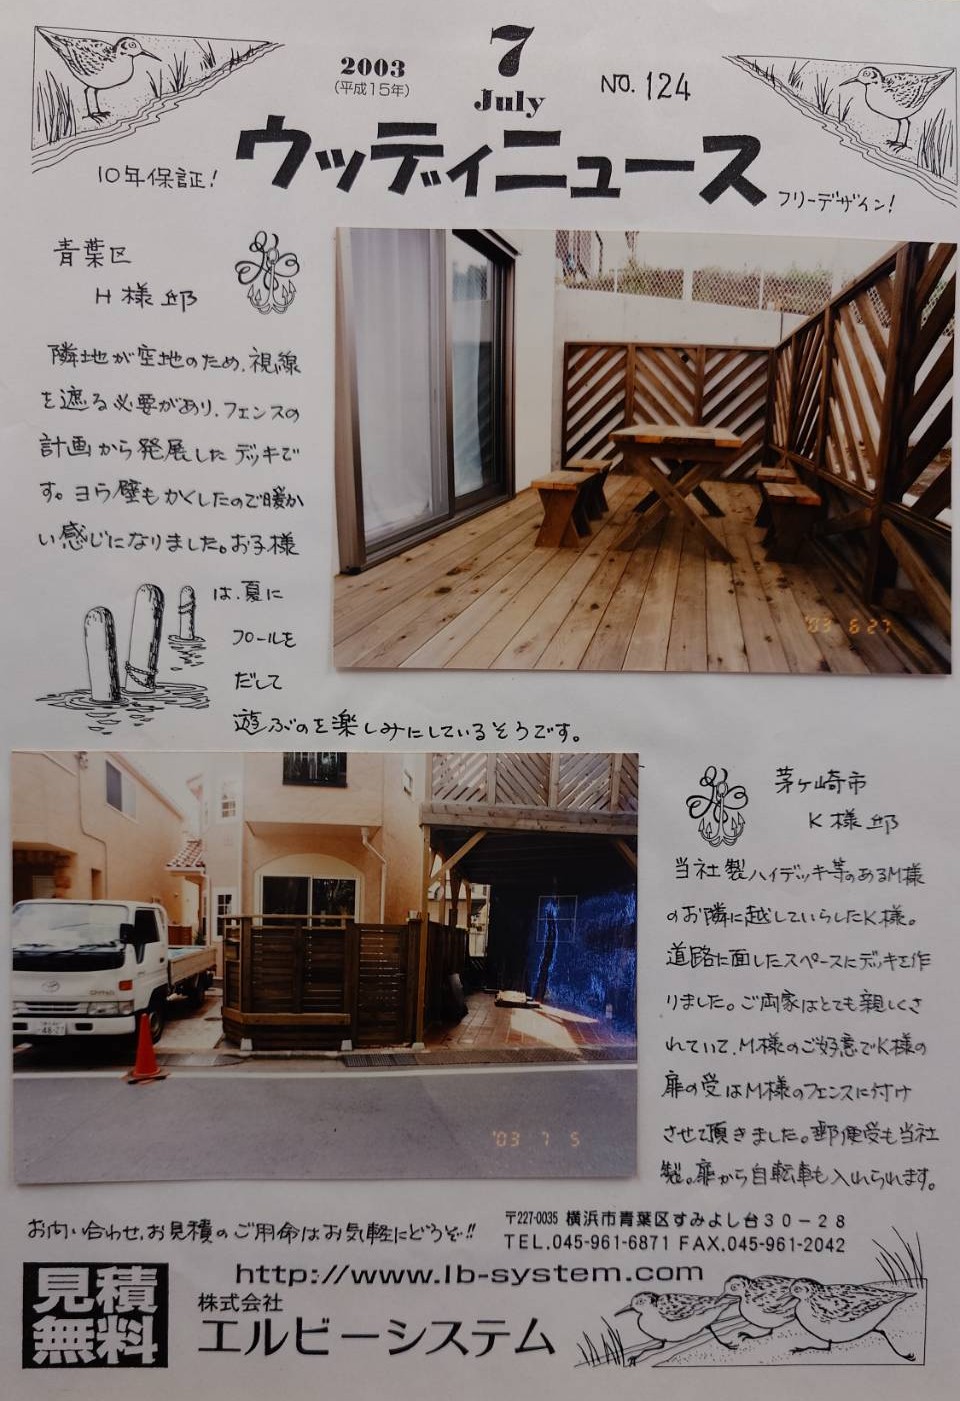 2003
(平成15年)
7
July
NO. 124
ウッディニュース
10年保証!
フリーデザイン!
青葉区
H様邸
隣地が空地のため、視線
を遮る必要があり、フェンスの
計画から発展したデッキで
す。ヨウ壁もかくしたので暖か
い感じになりました。お子様
は、夏に
プールを
だして
遊ぶのを楽しみにしているそうです。
'03 6 27
茅ヶ崎市
K様邸
当社製ハイデッキ等のあるM様
のお隣に越していらしたK様。
道路に面したスペースにデッキを作
りました。ご両家はとても親しくさ
れていて、M様のご好意でK様の
扉の受はM様のフェンスに付け
させて頂きました。郵便受も当社
製。扉から自転車も入れられます。
48-27
'03 7 5
お問い合わせ、お見積のご用命はお気軽にどうぞ!!
〒227-0035 横浜市青葉区すみよし台30-28
TEL.045-961-6871 FAX.045-961-2042
http://www.lb-system.com
見積
無料
株式会社
エルビーシステム